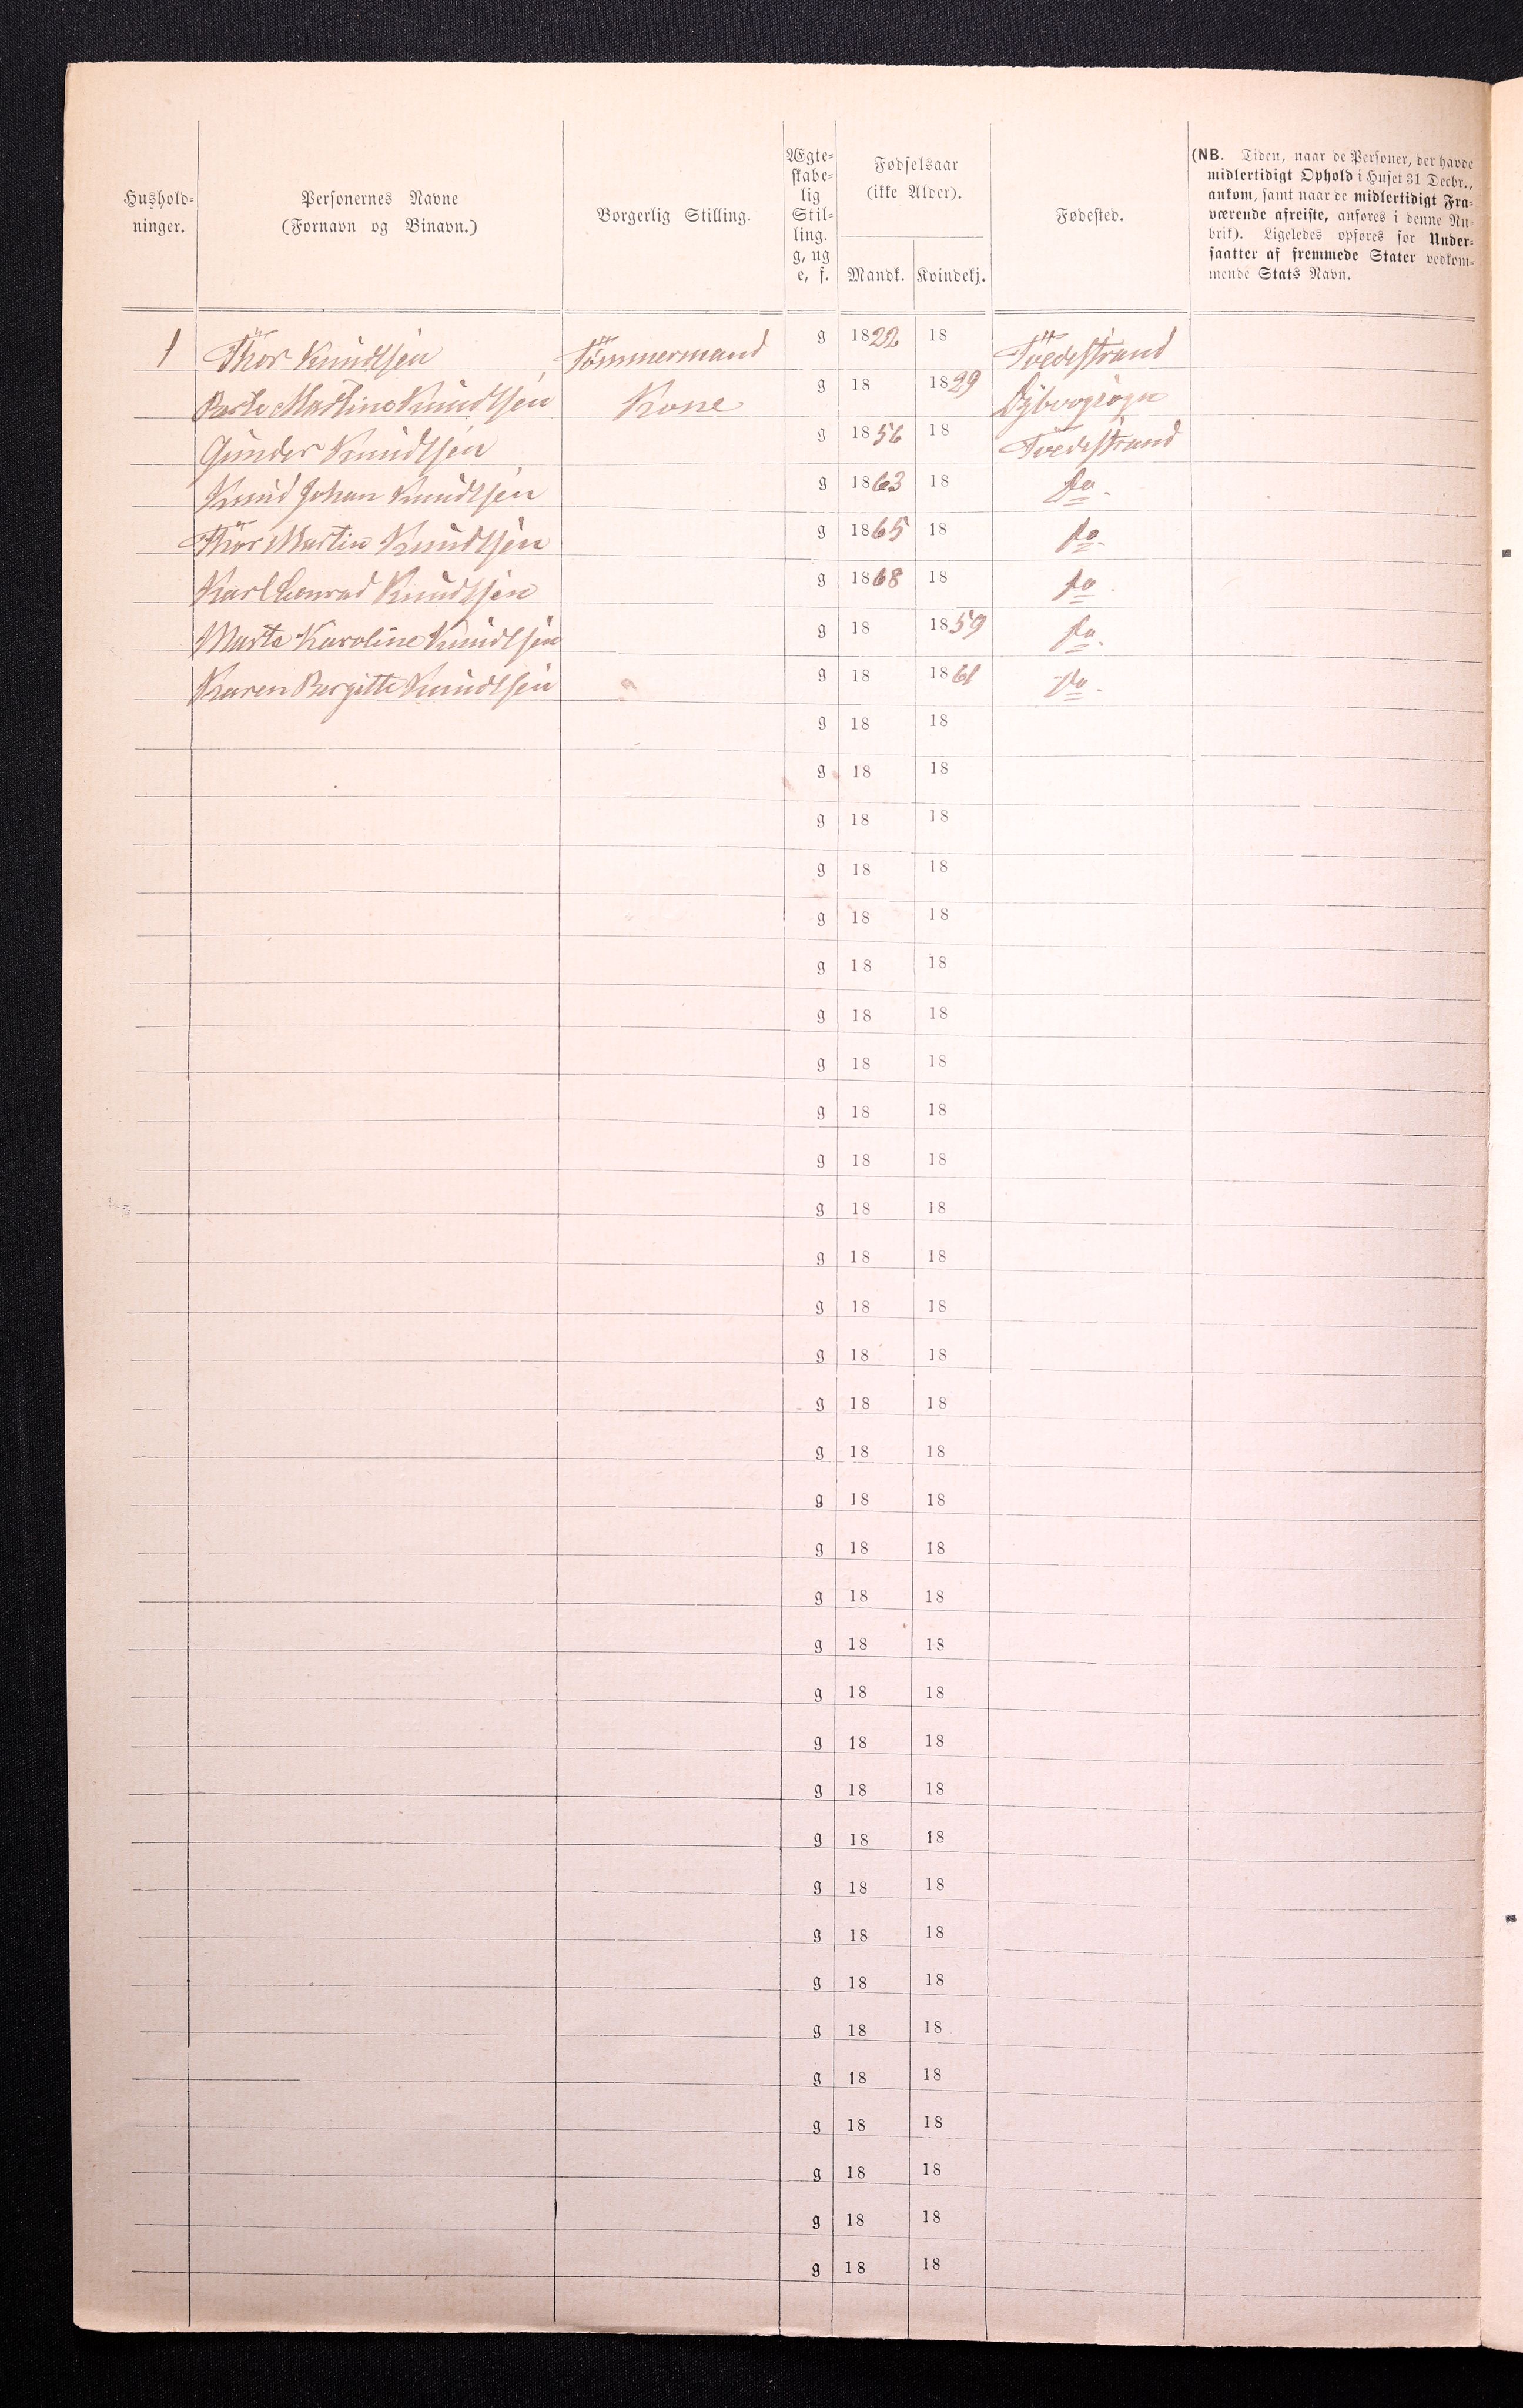 Hushold-
ninger.
Personernes Navne
(Fornavn og Binavn.)
Borgerlig Stilling.
Ægte-
skabe-
lig
Stil-
ling.
g, ug
e, f.
Fødselsaar
(ikke Alder).
Mandk. Kvindekj.
Fødested.
(NB. Tiden, naar de Personer, der havde
midlertidigt Ophold i Huset 31 Decbr.,
ankom, samt naar de midlertidigt Fra-
værende afreiste, anføres i denne Ru-
brik). Ligeledes opføres for Under-
saatter af fremmede Stater vedkom-
mende Stats Navn.
1 Thor Knudtsen Tømmermand g 1822 18 Tvedestrand
Martine Knudtsen Kone g 18 1829 Dybvogsogn
Gunder Knudtsen g 1856 18 Tvedestrand
Knud Johan Knudtsen g 1863 18 do.
Thor Martin Knudtsen g 1865 18 do.
Karl Conrad Knudtsen g 1868 18 do.
Marte Karoline Knudtsen g 18 1859 do.
Karen Bergitte Knudtsen g 18 1861 do.
g 18 18
g 18 18
g 18 18
g 18 18
g 18 18
g 18 18
g 18 18
g 18 18
g 18 18
g 18 18
g 18 18
g 18 18
g 18 18
g 18 18
g 18 18
g 18 18
g 18 18
g 18 18
g 18 18
g 18 18
g 18 18
g 18 18
g 18 18
g 18 18
g 18 18
g 18 18
g 18 18
g 18 18
g 18 18
g 18 18
g 18 18
g 18 18
g 18 18